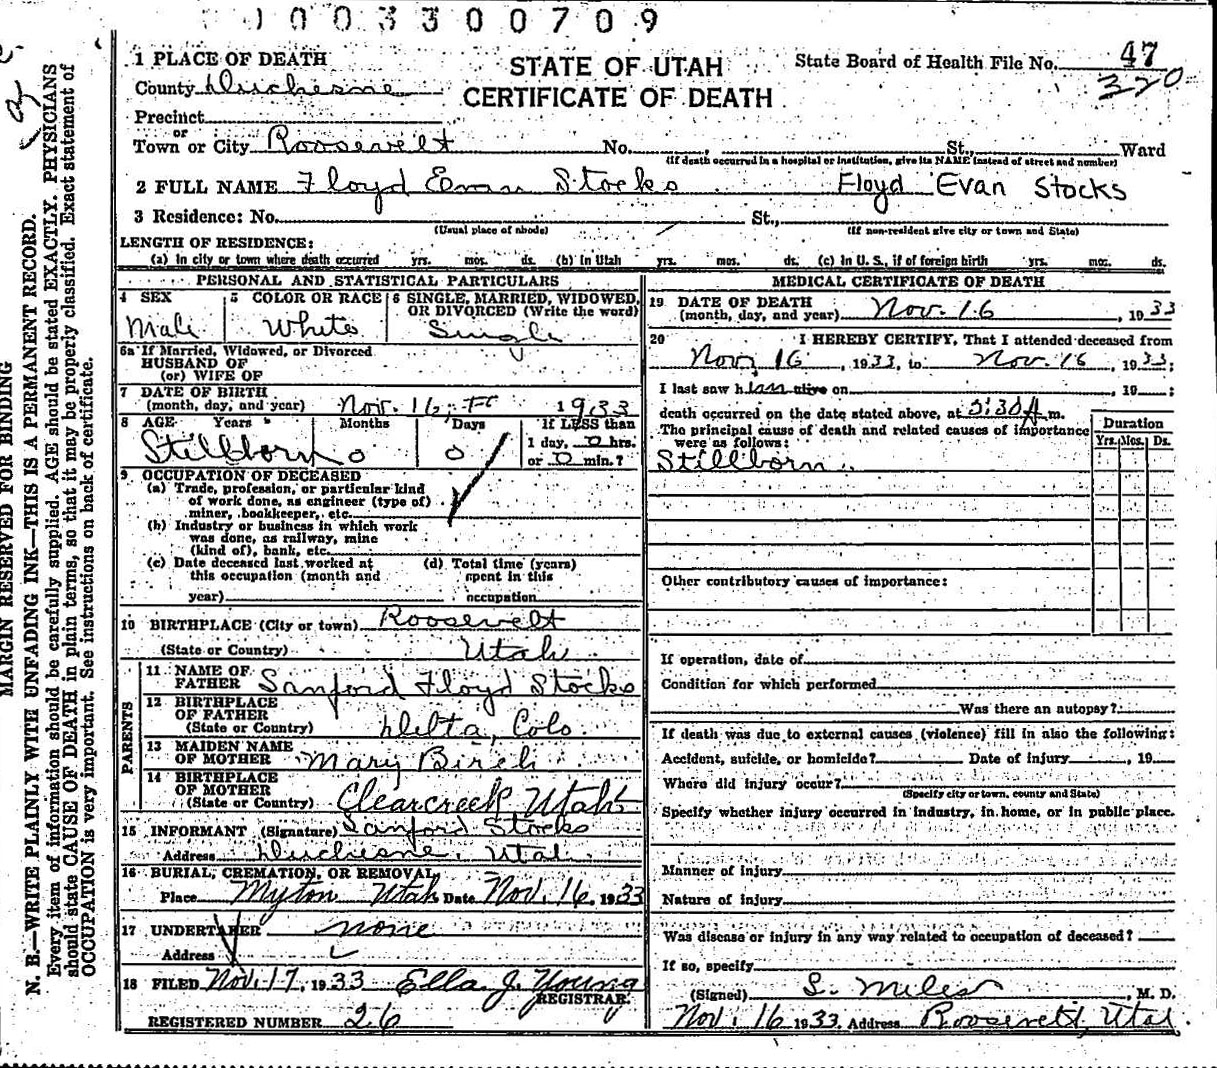 1003300709
1 PLACE OF DEATH
STATE OF UTAH
State Board of Health File No. 47
County Duchesne
CERTIFICATE OF DEATH
320
Precinct
or
Town or City Roosevelt No. St., Ward
(If death occurred in a hospital or institution, give its NAME instead of street and number)
2 FULL NAME Floyd Evan Stocks Floyd Evan Stocks
3 Residence: No. St.,
(Usual place of abode) (If non-resident give city or town and State)
LENGTH OF RESIDENCE:
(a) In city or town where death occurred yrs. mos. ds. (b) In Utah yrs. mos. ds. (c) In U. S., if of foreign birth yrs. mos. ds.
PERSONAL AND STATISTICAL PARTICULARS
4 SEX 5 COLOR OR RACE 6 SINGLE, MARRIED, WIDOWED, OR DIVORCED (Write the word)
Male White Single
6a If Married, Widowed, or Divorced
HUSBAND OF
(or) WIFE OF
7 DATE OF BIRTH
(month, day, and year) Nov. 16, 1933
8 AGE Years Months Days If LESS than
Stillborn 0 0 1 day, 0 hrs.
or 0 min.?
9 OCCUPATION OF DECEASED
(a) Trade, profession, or particular kind
of work done, as engineer (type of)
miner, bookkeeper, etc.
(b) Industry or business in which work
was done, as railway, mine
(kind of), bank, etc.
(c) Date deceased last worked at (d) Total time (years)
this occupation (month and spent in this
year) occupation
10 BIRTHPLACE (City or town) Roosevelt
(State or Country) Utah
PARENTS
11 NAME OF
FATHER Sanford Floyd Stocks
12 BIRTHPLACE
OF FATHER
(State or Country) Delta, Colo.
13 MAIDEN NAME
OF MOTHER Mary Birch
14 BIRTHPLACE
OF MOTHER
(State or Country) Clearcreek Utah
15 INFORMANT (Signature) Sanford Stocks
Address Duchesne, Utah.
16 BURIAL, CREMATION, OR REMOVAL
Place Myton Utah Date Nov. 16, 1933
17 UNDERTAKER none
Address
18 FILED Nov. 17, 1933 Ella J. Young
REGISTRAR.
REGISTERED NUMBER 26
MEDICAL CERTIFICATE OF DEATH
19 DATE OF DEATH
(month, day, and year) Nov. 16, 1933
20 I HEREBY CERTIFY, That I attended deceased from
Nov. 16, 1933, to Nov. 16, 1933;
I last saw him alive on , 19 ;
death occurred on the date stated above, at 5:30 A m.
The principal cause of death and related causes of importance
were as follows:
Duration
Yrs. Mos. Ds.
Stillborn.
Other contributory causes of importance:
If operation, date of
Condition for which performed
Was there an autopsy?
If death was due to external causes (violence) fill in also the following:
Accident, suicide, or homicide? Date of injury , 19
Where did injury occur?
(Specify city or town, county and State)
Specify whether injury occurred in industry, in home, or in public place.
Manner of injury
Nature of injury
Was disease or injury in any way related to occupation of deceased?
If so, specify
(Signed) S. Miles , M. D.
Nov. 16 1933, Address Roosevelt, Utah
MARGIN RESERVED FOR BINDING
N. B.—WRITE PLAINLY WITH UNFADING INK—THIS IS A PERMANENT RECORD.
Every item of information should be carefully supplied. AGE should be stated EXACTLY. PHYSICIANS
should state CAUSE OF DEATH in plain terms, so that it may be properly classified. Exact statement of
OCCUPATION is very important. See instructions on back of certificate.